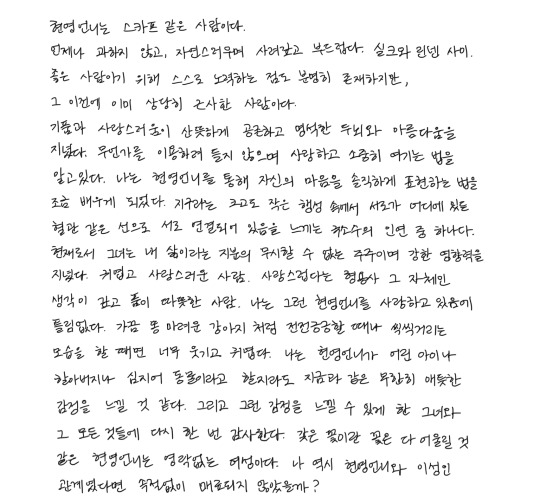 현영언니는 스카프 같은 사람이다.
언제나 과하지 않고, 자연스러우며 사려깊고 부드럽다. 실크와 린넨 사이.
좋은 사람이기 위해 스스로 노력하는 점도 분명히 존재하지만,
그 이전에 이미 상당히 근사한 사람이다.
기품과 사랑스러움이 산뜻하게 공존하고 명석한 두뇌와 아름다움을
지녔다. 무언가를 이용하려 들지 않으며 사랑하고 소중히 여기는 법을
알고있다. 나는 현영언니를 통해 자신의 마음을 솔직하게 표현하는 법을
조금 배우게 되었다. 지구라는 크고도 작은 행성 속에서 서로가 어디에 있든
혈관 같은 선으로 서로 연결되어 있음을 느끼는 극소수의 인연 중 하나다.
현재로서 그녀는 내 삶이라는 지분의 무시할 수 없는 주주이며 강한 영향력을
지녔다. 귀엽고 사랑스러운 사람. 사랑스럽다는 형용사 그 자체인
생각이 깊고 품이 따뜻한 사람. 나는 그런 현영언니를 사랑하고 있음에
틀림없다. 가끔 똥 마려운 강아지 처럼 전전긍긍할 때나 씩씩거리는
모습을 할 때면 너무 웃기고 귀엽다. 나는 현영언니가 어린 아이나
할아버지나 심지어 동물이라고 할지라도 지금과 같은 무한히 애틋한
감정을 느낄 것 같다. 그리고 그런 감정을 느낄 수 있게 한 그녀와
그 모든 것들에 다시 한 번 감사한다. 갖은 꽃이란 꽃은 다 어울릴 것
같은 현영언니는 영락없는 여성이다. 나 역시 현영언니와 이성인
관계였다면 속절없이 매료되지 않았을까?